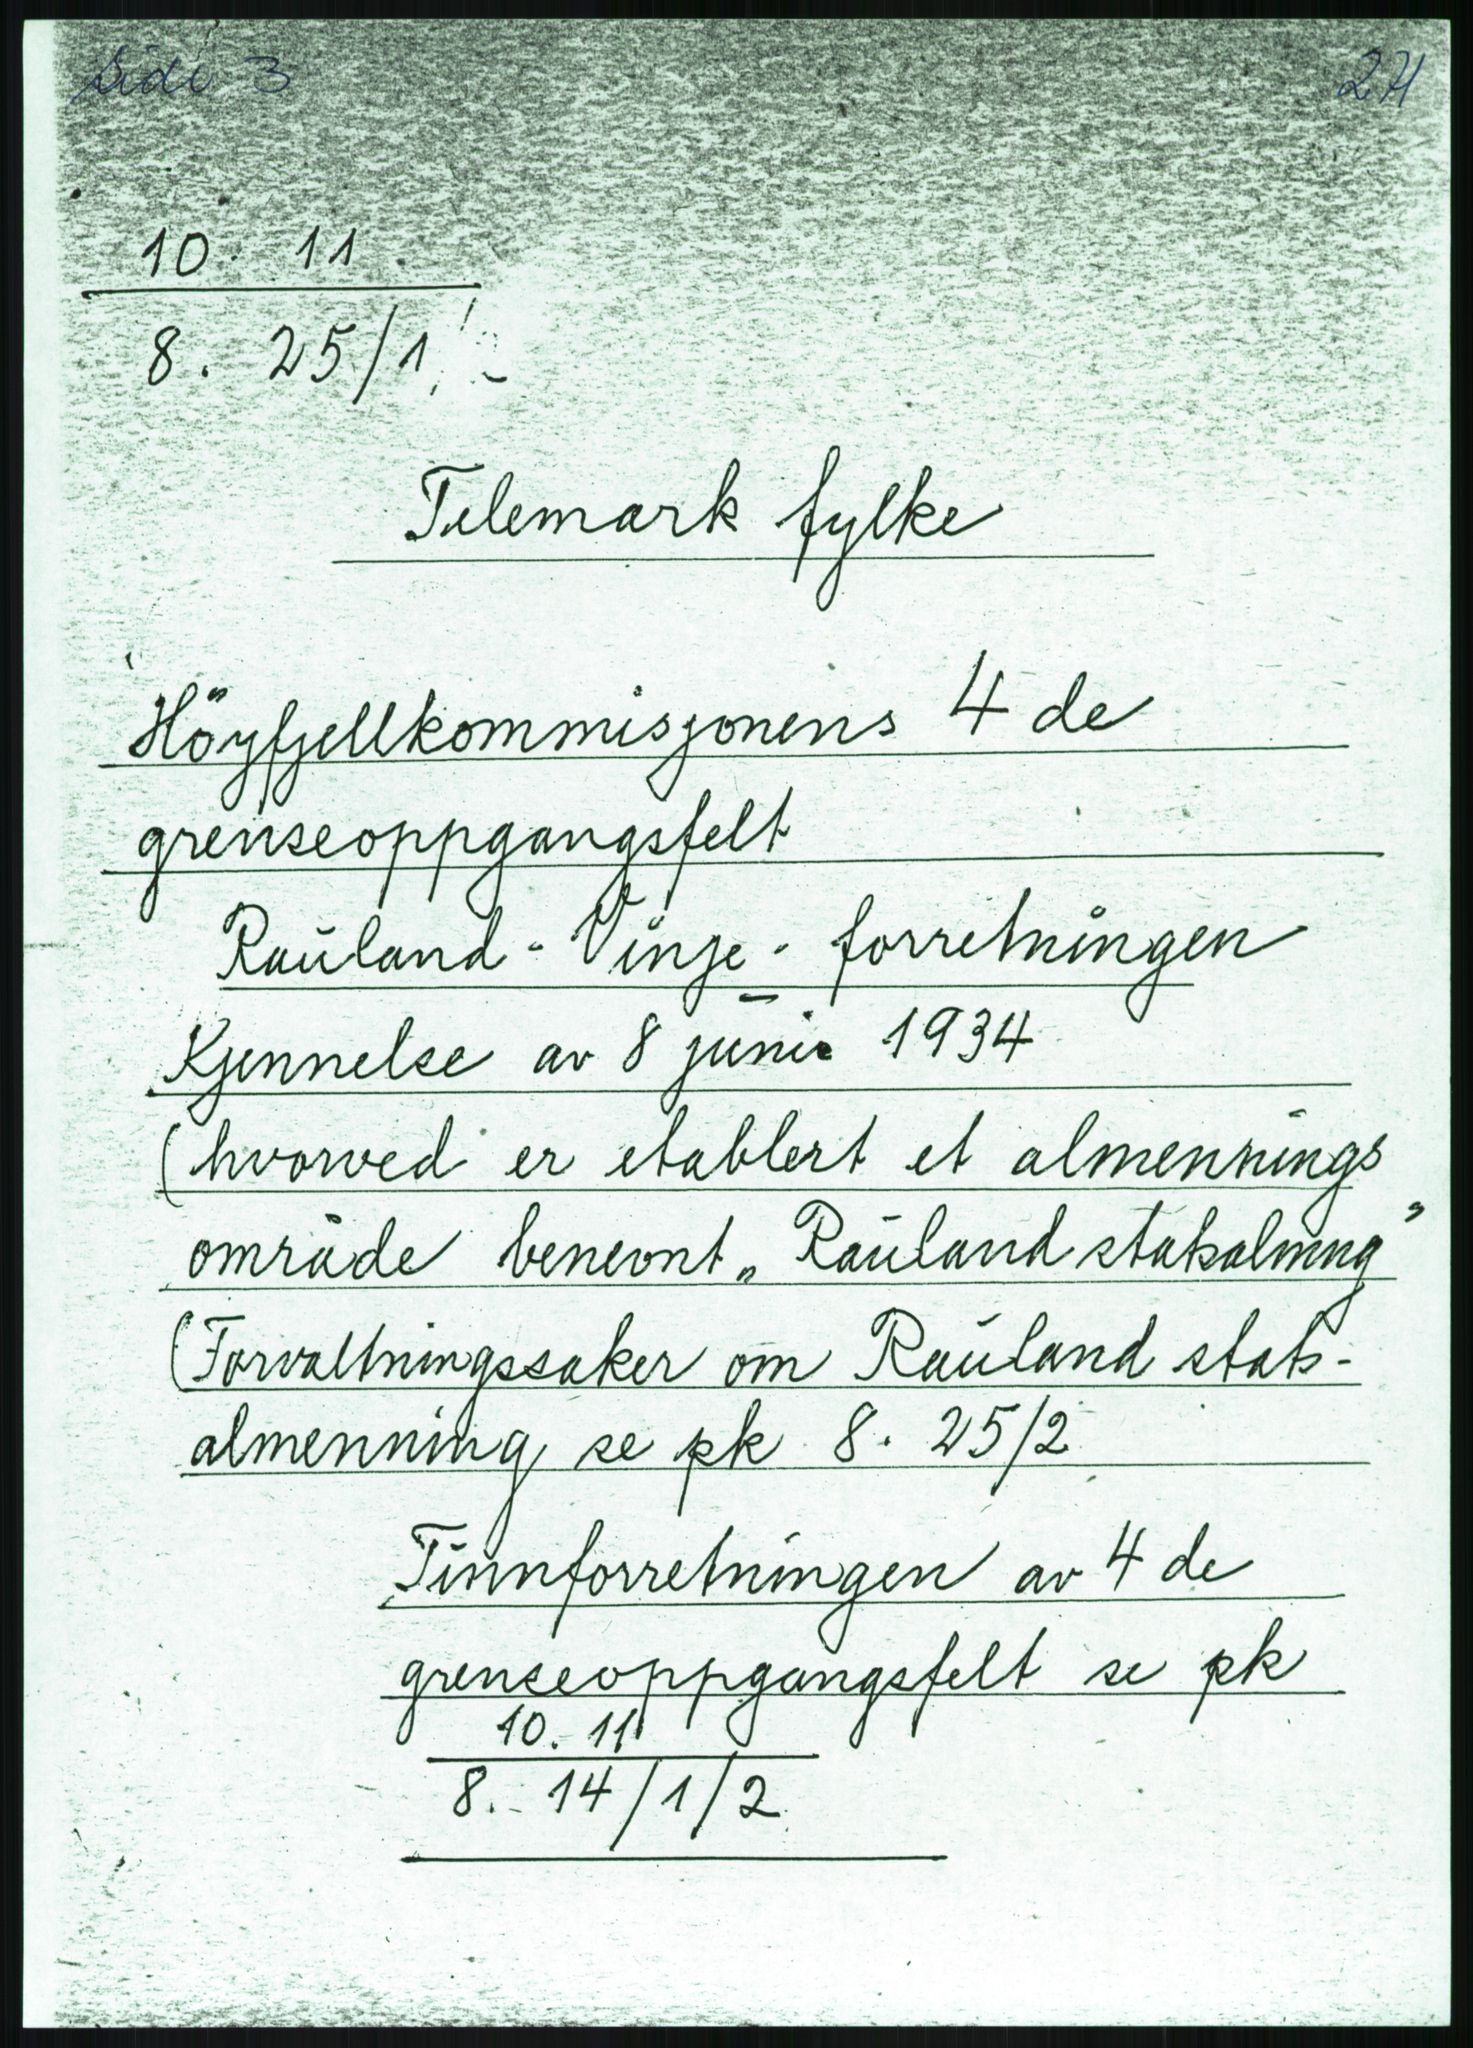 Side 3
10. 11
8. 25/1
Telemark fylke
Höyfjellkommisjonens 4 de
grenseoppgangsfelt
Rauland - Vinje - forretningen
Kjennelse av 8 juni 1934
(hvorved er etablert et almennings
område benevnt „Rauland statsalmng"
(Forvaltningssaker om Rauland stats-
almenning se pk 8. 25/2
Tinnforretningen av 4 de
grenseoppgangsfelt se pk
10. 11
8. 14/1/2